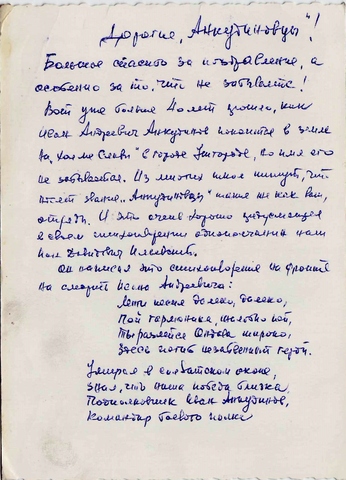 Дорогие "Анкудиновцы"!
Большое спасибо за поздравление, а
особенно за то, что не забываете!
Вот уже больше 40 лет прошло, как
Иван Андреевич Анкудинов покоится в земле
на "Холме Славы" в городе Ужгороде, но имя его
не забывается. Из многих школ пишут, что
носят звание "Анкудиновцы" такие же как вы,
отряды. И это очень хорошо
в своём стихотворении однополчанин
Он написал это стихотворение на фронте
на смерть Ивана Андреевича:
Лети песня далеко, далеко,
Пой гармоника, пой,
Ты разлейся широко,
Здесь погиб незабвенный герой.
Умирая в солдатском окопе,
Знал, что наша победа близка
Подполковник Иван Анкудинов,
Командир боевого полка